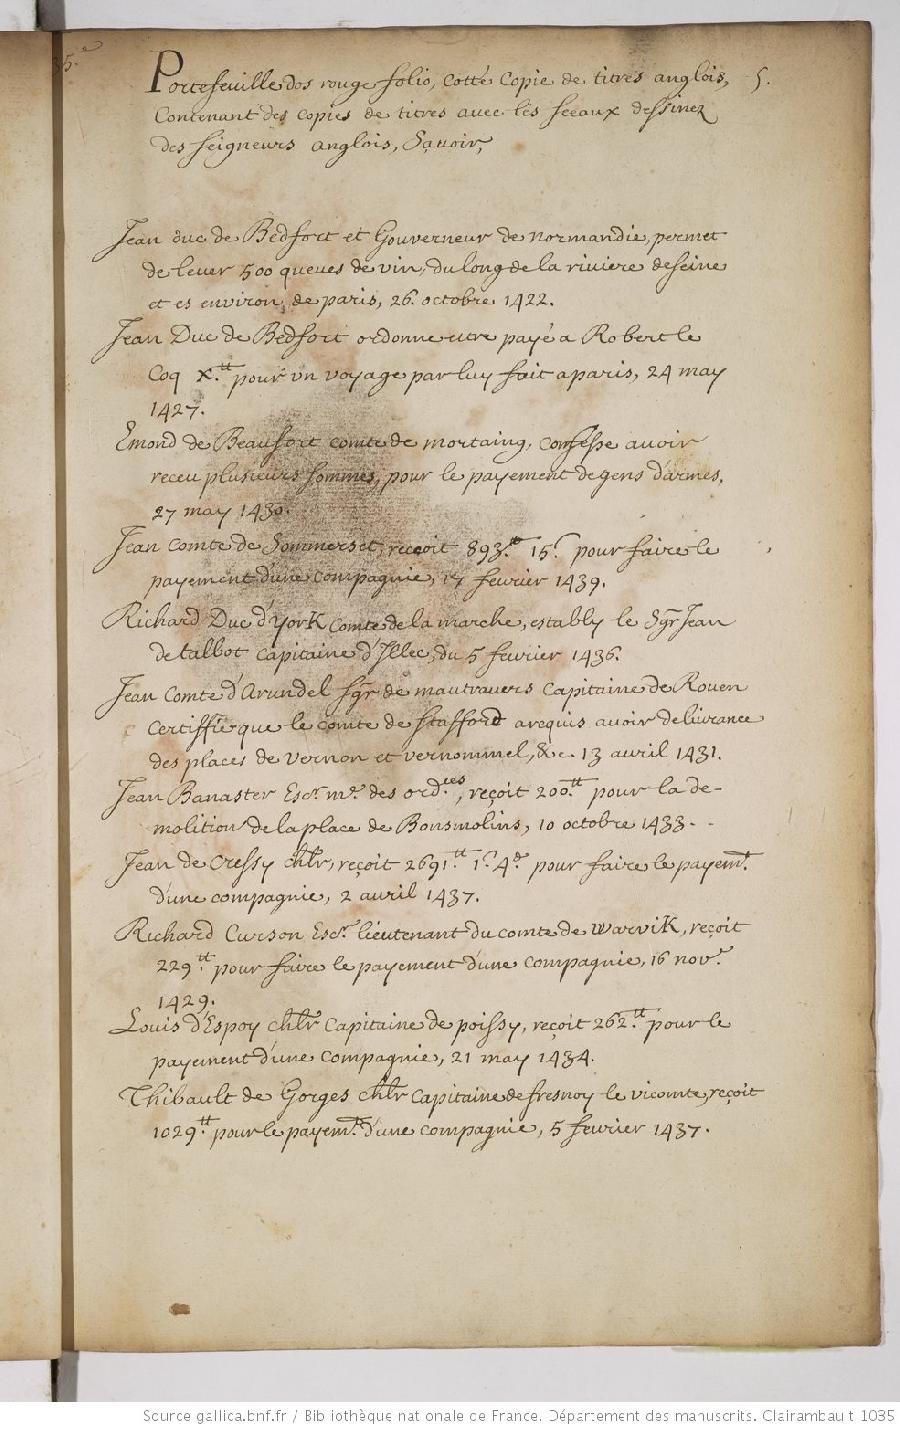 35.e
Portefeuille dos rouge folio, cotté Copie de titres anglois, 5.
Contenant des copies de titres avec les sceaux dessinez
des seigneurs anglois, Sçauoir,
Jean duc de Bedfort et Gouverneur de normandie, permet
de lever 500 queues de vin, du long de la riviere de seine
et es environ, de paris, 26. octobre 1422.
Jean Duc de Bedfort ordonne etre payé a Robert le
Coq X.tt pour vn voyage par luy fait a paris, 24 may
1427.
Emond de Beaufort comte de mortaing, confesse avoir
receu plusieurs sommes, pour le payement de gens d'armes.
27 may 1430.
Jean Comte de Sommerset, reçoit 893.tt 15s pour faire le
payement d'une compagnie, 17 fevrier 1439.
Richard Duc d'York Comte de la marche, establÿ le Sgr Jean
de talbot capitaine d'Illec, du 5 fevrier 1436.
Jean Comte d'Arundel sgr de mautravers Capitaine de Rouen
certiffie que le comte de Stafford a requis avoir delivrance
des places de vernon et vernommel, &c. 13 avril 1431.
Jean Banaster Escr. mr. des ord.ces, reçoit 200tt pour la de-
molition de la place de Bonsmolins, 10 octobre 1433.
Jean de Cressy chlr, reçoit 2691tt 1s. 4d. pour faire le payemt.
d'une compagnie, 2 avril 1437.
Richard Curson Escr. lieutenant du comte de Warvik, reçoit
229.tt pour faire le payement d'une compagnie, 16 novr.
1429.
Louis d'Espoy chlr Capitaine de poissy, reçoit 262.tt pour le
payement d'une compagnie, 21 may 1434.
Thibault de Gorges chlr capitaine de fresnoy le vicomte, reçoit
1029.tt pour le payemt. d'une compagnie, 5 fevrier 1437.
Source gallica.bnf.fr / Bibliothèque nationale de France. Département des manuscrits. Clairambault 1035